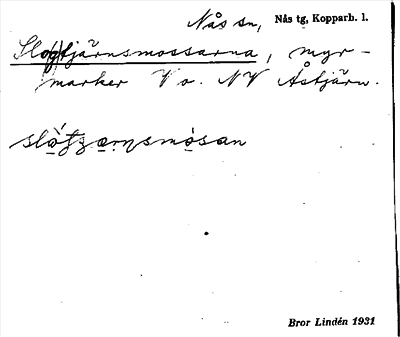 Nås sn, Nås tg, Kopparb. l.
Slogtjärnsmossarna, myr-
marker V o. NV Åstjärn.
Bror Lindén 1931